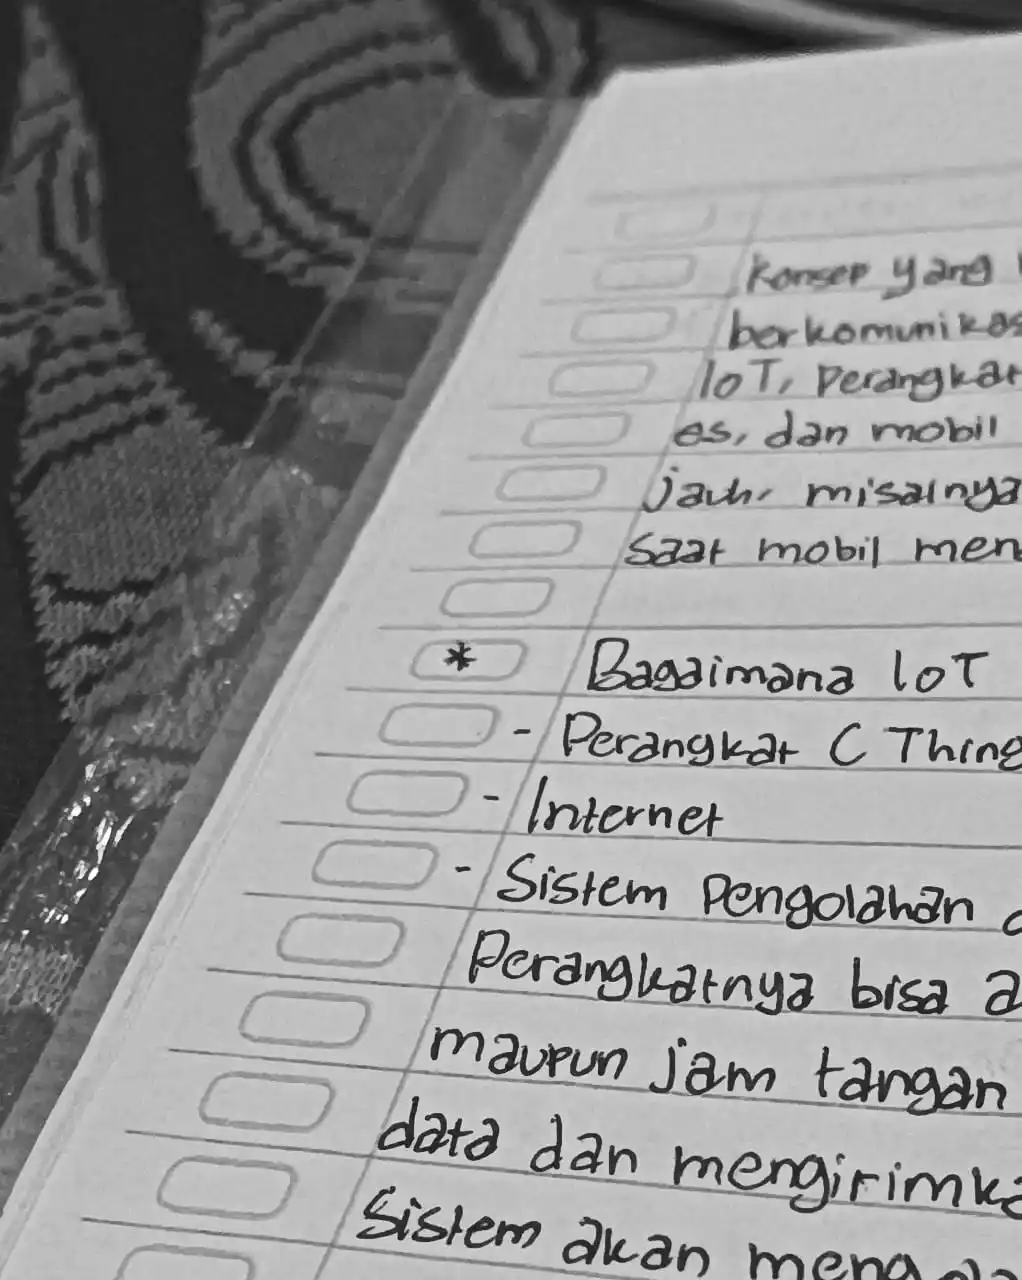 Konsep yang
berkomunikas
IoT, Perangkat
es, dan mobil
jauh, misalnya
saat mobil men
* Bagaimana IoT
- Perangkat C Thing
- Internet
- Sistem Pengolahan
Perangkatnya bisa a
maupun jam tangan
data dan mengirimka
Sistem akan meng